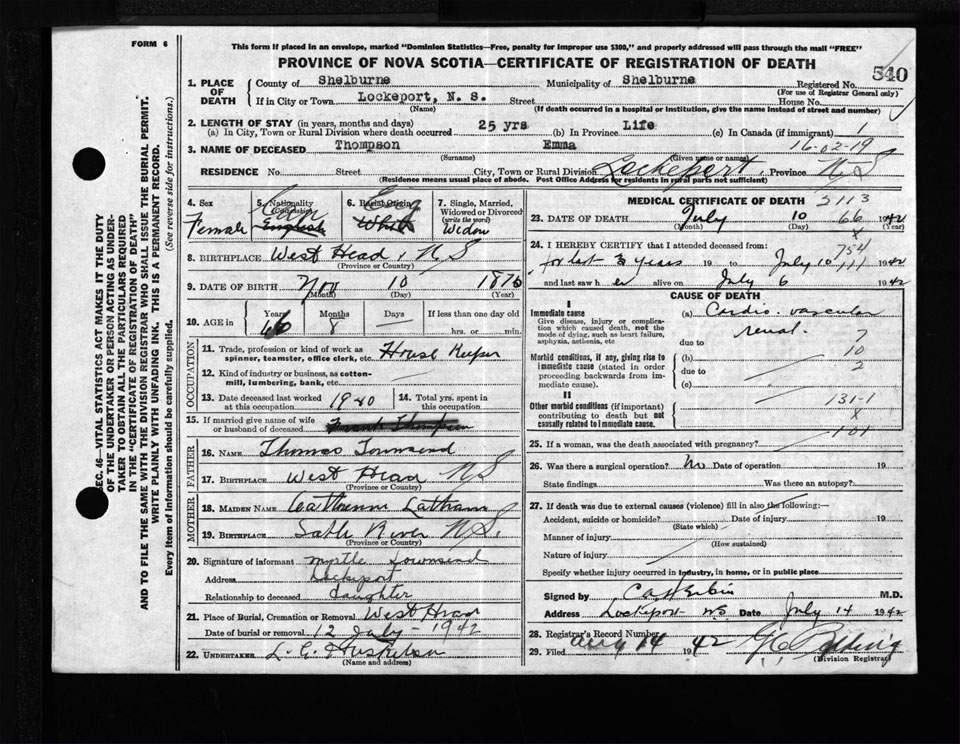 FORM 6
This form if placed in an envelope, marked "Dominion Statistics—Free, penalty for improper use $300," and properly addressed will pass through the mail "FREE"
PROVINCE OF NOVA SCOTIA—CERTIFICATE OF REGISTRATION OF DEATH
540
1. PLACE OF DEATH
County of Shelburne Municipality of Shelburne Registered No.
(For use of Registrar General only)
If in City or Town Lockeport, N. S. Street House No.
(Name) (If death occurred in a hospital or institution, give the name instead of street and number)
2. LENGTH OF STAY (in years, months and days)
(a) In City, Town or Rural Division where death occurred 25 yrs (b) In Province Life (c) In Canada (if immigrant) 1
16-02-19
3. NAME OF DECEASED Thompson Emma
(Surname) (Given name or names)
RESIDENCE No. Street City, Town or Rural Division Lockeport. Province N S
(Residence means usual place of abode. Post Office Address for residents in rural parts not sufficient)
4. Sex Female
5. Nationality (Citizenship) English
6. Racial Origin White
7. Single, Married, Widowed or Divorced (write the word) Widow
8. BIRTHPLACE West Head, N S
(Province or Country)
9. DATE OF BIRTH Nov 10 1875
(Month) (Day) (Year)
10. AGE in Years 66 Months 8 Days — If less than one day old
hrs. or min.
OCCUPATION
11. Trade, profession or kind of work as spinner, teamster, office clerk, etc. House Keeper
12. Kind of industry or business, as cotton-mill, lumbering, bank, etc.
13. Date deceased last worked at this occupation 1940 14. Total yrs. spent in this occupation
15. If married give name of wife or husband of deceased Thompson
FATHER
16. NAME Thomas Townsend
17. BIRTHPLACE West Head N S
(Province or Country)
MOTHER
18. MAIDEN NAME Catherine Latham
19. BIRTHPLACE Sable River N S.
(Province or Country)
20. Signature of informant Myrtle Townsend
Address Lockeport
Relationship to deceased daughter
21. Place of Burial, Cremation or Removal West Head
Date of burial or removal 12 July - 1942
22. UNDERTAKER L. E. Huskilson
(Name and address)
MEDICAL CERTIFICATE OF DEATH
2113
23. DATE OF DEATH July 10 1942
(Month) (Day) (Year)
66
x
24. I HEREBY CERTIFY that I attended deceased from:
754
111
for last 3 years 19 to July 10 1942
and last saw h er alive on July 6 1942
CAUSE OF DEATH
I
Immediate cause
Give disease, injury or complication which caused death, not the mode of dying, such as heart failure, asphyxia, asthenia, etc
(a) Cardio. vascular
renal.
due to
7
10
2
Morbid conditions, if any, giving rise to immediate cause (stated in order proceeding backwards from immediate cause).
(b)
due to
(c)
II
Other morbid conditions (if important) contributing to death but not causally related to immediate cause.
131-1
x
101
25. If a woman, was the death associated with pregnancy?
26. Was there a surgical operation? No Date of operation 19
State findings Was there an autopsy?
27. If death was due to external causes (violence) fill in also the following:—
Accident, suicide or homicide? Date of injury 19
(State which)
Manner of injury
(How sustained)
Nature of injury
Specify whether injury occurred in industry, in home, or in public place
Signed by M.D.
Address Lockeport NS Date July 14 1942
28. Registrar's Record Number
29. Filed Aug 14 1942
(Division Registrar)
SEC. 46—VITAL STATISTICS ACT MAKES IT THE DUTY
OF THE UNDERTAKER OR PERSON ACTING AS UNDER-
TAKER TO OBTAIN ALL THE PARTICULARS REQUIRED
IN THE "CERTIFICATE OF REGISTRATION OF DEATH"
AND TO FILE THE SAME WITH THE DIVISION REGISTRAR WHO SHALL ISSUE THE BURIAL PERMIT.
WRITE PLAINLY WITH UNFADING INK. THIS IS A PERMANENT RECORD.
Every item of information should be carefully supplied. (See reverse side for instructions.)